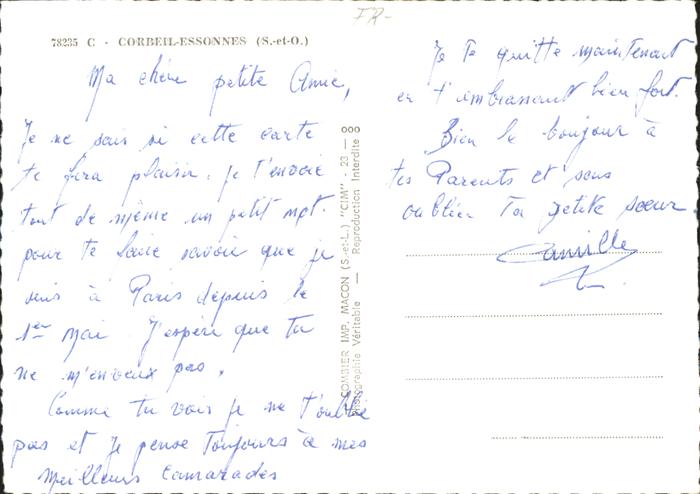 FR-
78235 C - CORBEIL-ESSONNES (S.-et-O.)
Ma chère petite Amie,
Je ne sais si cette carte
te fera plaisir, je t'envoie
tout de même un petit mot.
pour te faire savoir que je
suis à Paris depuis le
1er Mai. J'espère que tu
ne m'en veux pas.
Comme tu vois je ne t'oublie
pas et je pense toujours à mes
meilleurs camarades
COMBIER IMP. MACON (S.-et-L.) "CIM" - 23 — ooo
Photographie Véritable — Reproduction Interdite
Je te quitte maintenant
en t'embrassant bien fort.
Bien le bonjour à
tes Parents et sans
oublier ta petite sœur
Camille